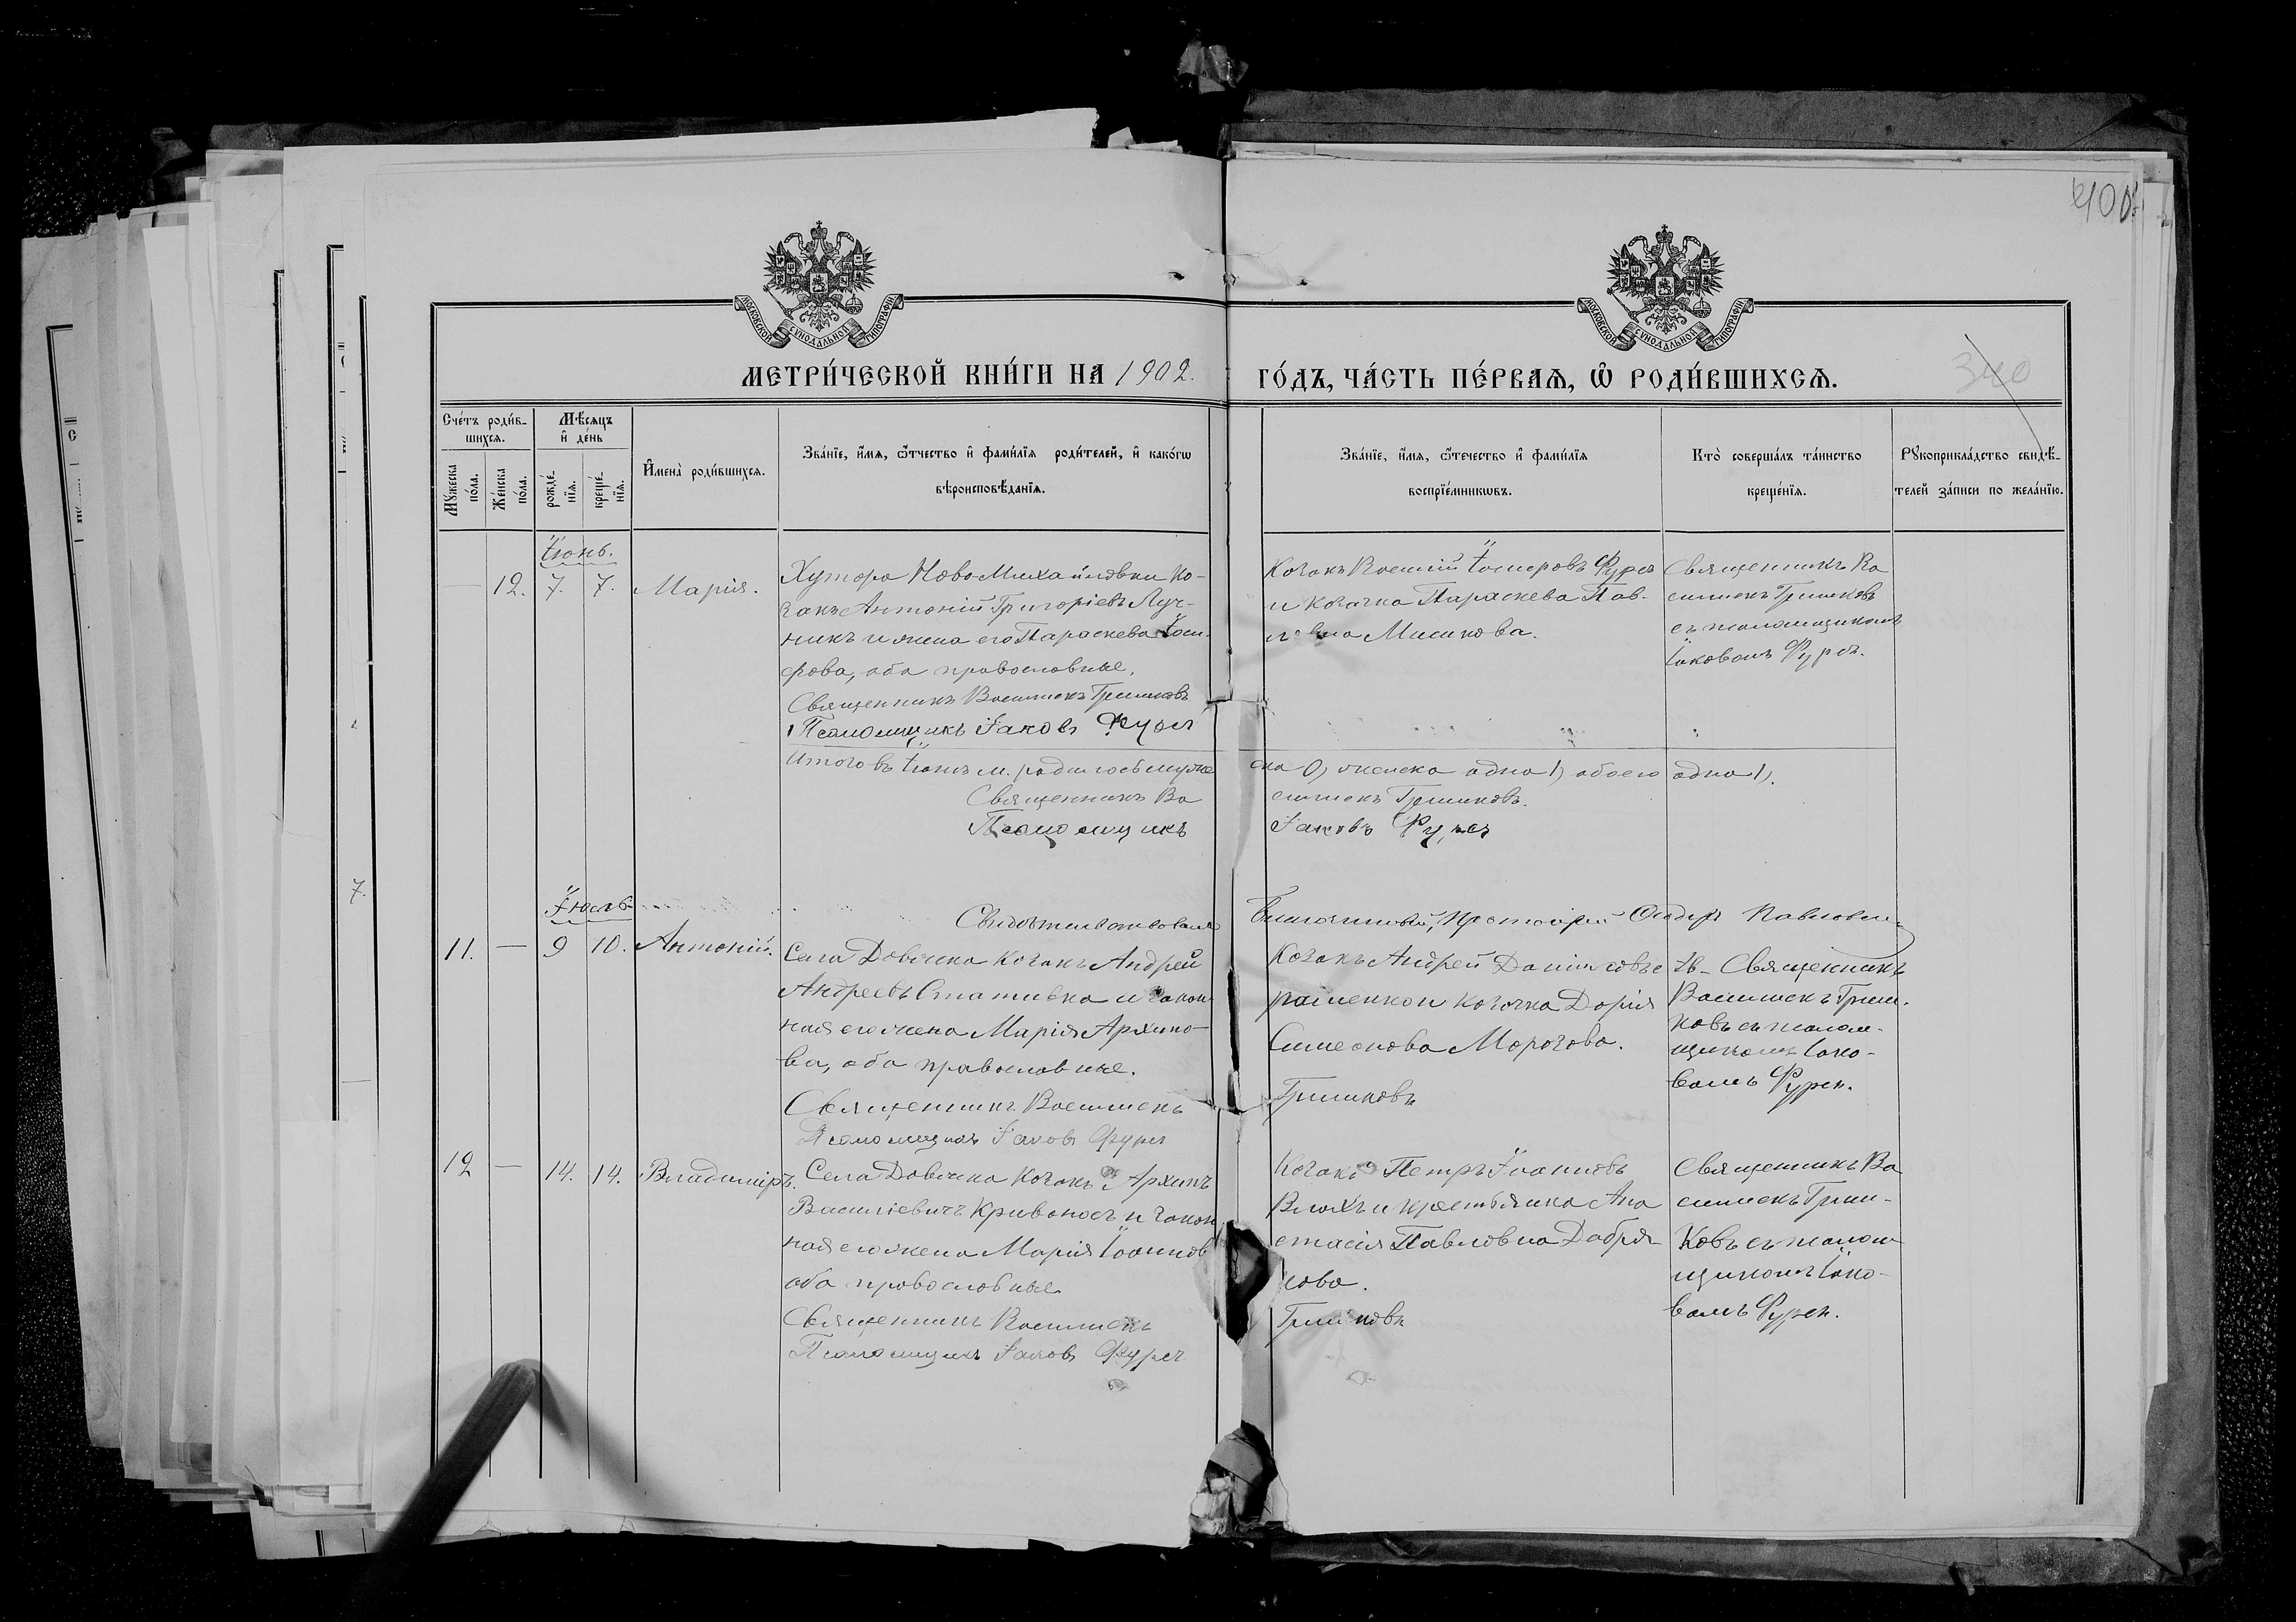 400
МОСКОВСКОЙ СѴНОДАЛЬНОЙ ТИПОГРАФІИ
МОСКОВСКОЙ СѴНОДАЛЬНОЙ ТИПОГРАФІИ
МЕТРИ́ЧЕСКОЙ КНИ́ГИ НА 1902.
ГО́ДЪ, ЧА́СТЬ ПЕ́РВАЯ, Ѽ РОДИ́ВШИХСЯ.
340
Сче́тъ роди́в-
шихся.
Мѣ́сяцъ
и҆ де́нь
Мꙋ́жеска
по́ла.
Же́нска
по́ла.
рожде́-
нїя.
креще́-
нїя.
И҆мена̀ роди́вшихся.
Зва́нїе, и҆́мя, ѻ҆́тчество и҆ фами́лїя роди́телей, и҆ како́гѡ
вѣроисповѣ́данїя.
Зва́нїе, и҆́мя, ѻ҆те́чество и҆ фами́лїя
воспрїе́мникѡвъ.
Кто̀ соверша́лъ та́инство
креще́нїя.
Рꙋкоприкла́дство свидѣ́-
телей за́писи по жела́нїю.
Іюнь.
— 12. 7. 7. Марія.
Хутора НовоМихайловки ко-
закъ Антоній Григоріевъ Луч-
никъ и жена его Параскева Іоси-
фова, оба православные.
Священникъ Василискъ Гришковъ
Псаломщикъ Іаковъ Фурса
Козакъ Василій Іосифовъ Фурса
и козачка Параскева Пав-
лова Мисикова.
Священникъ Ва
силискъ Гришковъ
съ псаломщикомъ
Іаковомъ Фурса.
Итого въ Іюнѣ м. родилось муже
ска 0, женска одна 1, обоего одна 1.
Священникъ Ва
силискъ Гришковъ.
Псаломщикъ
Іаковъ Фурса
Іюль.
Свидѣтельствовалъ
Благочинный, Протоіерей Павловскій
11. — 9 10. Антоній.
Села Довжика козакъ Андрей
Андреевъ Стативка и закон
ная его жена Марія Архипо-
ва, оба православные.
Священникъ Василискъ
Гришковъ
Псаломщикъ Іаковъ Фурса
Козакъ Андрей Даніиловъ
и козачка Дарія
Симеонова Морозова.
Священникъ
Василискъ Гриш-
ковъ съ псалом-
щикомъ Іако-
вомъ Фурса.
12 — 14. 14. Владиміръ.
Села Довжика козакъ Архипъ
Василіевичъ Кривоносъ и закон
ная его жена Марія Іоаннов
оба православные
Священникъ Василискъ
Гришковъ
Псаломщикъ Іаковъ Фурса
Козакъ Петръ Іоанновъ
Влохъ и крестьянка Ана
стасія Павловна Добря-
кова.
Священникъ Ва
силискъ Гриш-
ковъ съ псалом
щикомъ Іако-
вомъ Фурса.